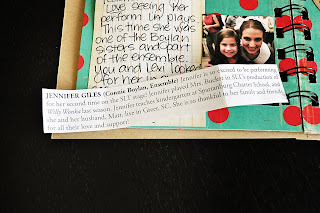 Love seeing her
perform in plays
This time she was
one of the Boylan
sisters and part
of the ensemble.
You and Lexi looked
for her
JENNIFER GILES (Connie Boylan, Ensemble) Jennifer is so excited to be performing
for her second time on the SLT stage! Jennifer played Mrs. Bucket in SLT's production of
Willy Wonka last season. Jennifer teaches kindergarten at Spartanburg Charter School, and
she and her husband, Matt, live in Greer, SC. She is so thankful to her family and friends
for all their love and support!